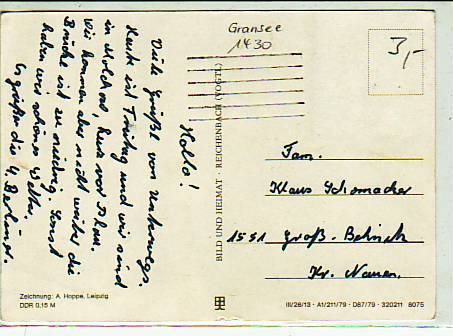 Hallo!
Viele Grüße von unterwegs.
Heute ist Freitag und wir sind
in Molchow, kurz vor
Wir kommen aber nicht weiter die
Brücke ist zu niedrig. Sonst
haben wir schönes Wetter.
Es grüßen die 4 Berliner.
Gransee
1430
3,-
BILD UND HEIMAT · REICHENBACH (VOGTL)
Fam.
Klaus Schomacker
1551 Groß-Behnitz
Kr. Nauen
Zeichnung: A. Hoppe, Leipzig
DDR 0,15 M
III/26/13 · A1/211/79 · D87/79 · 320211 8075